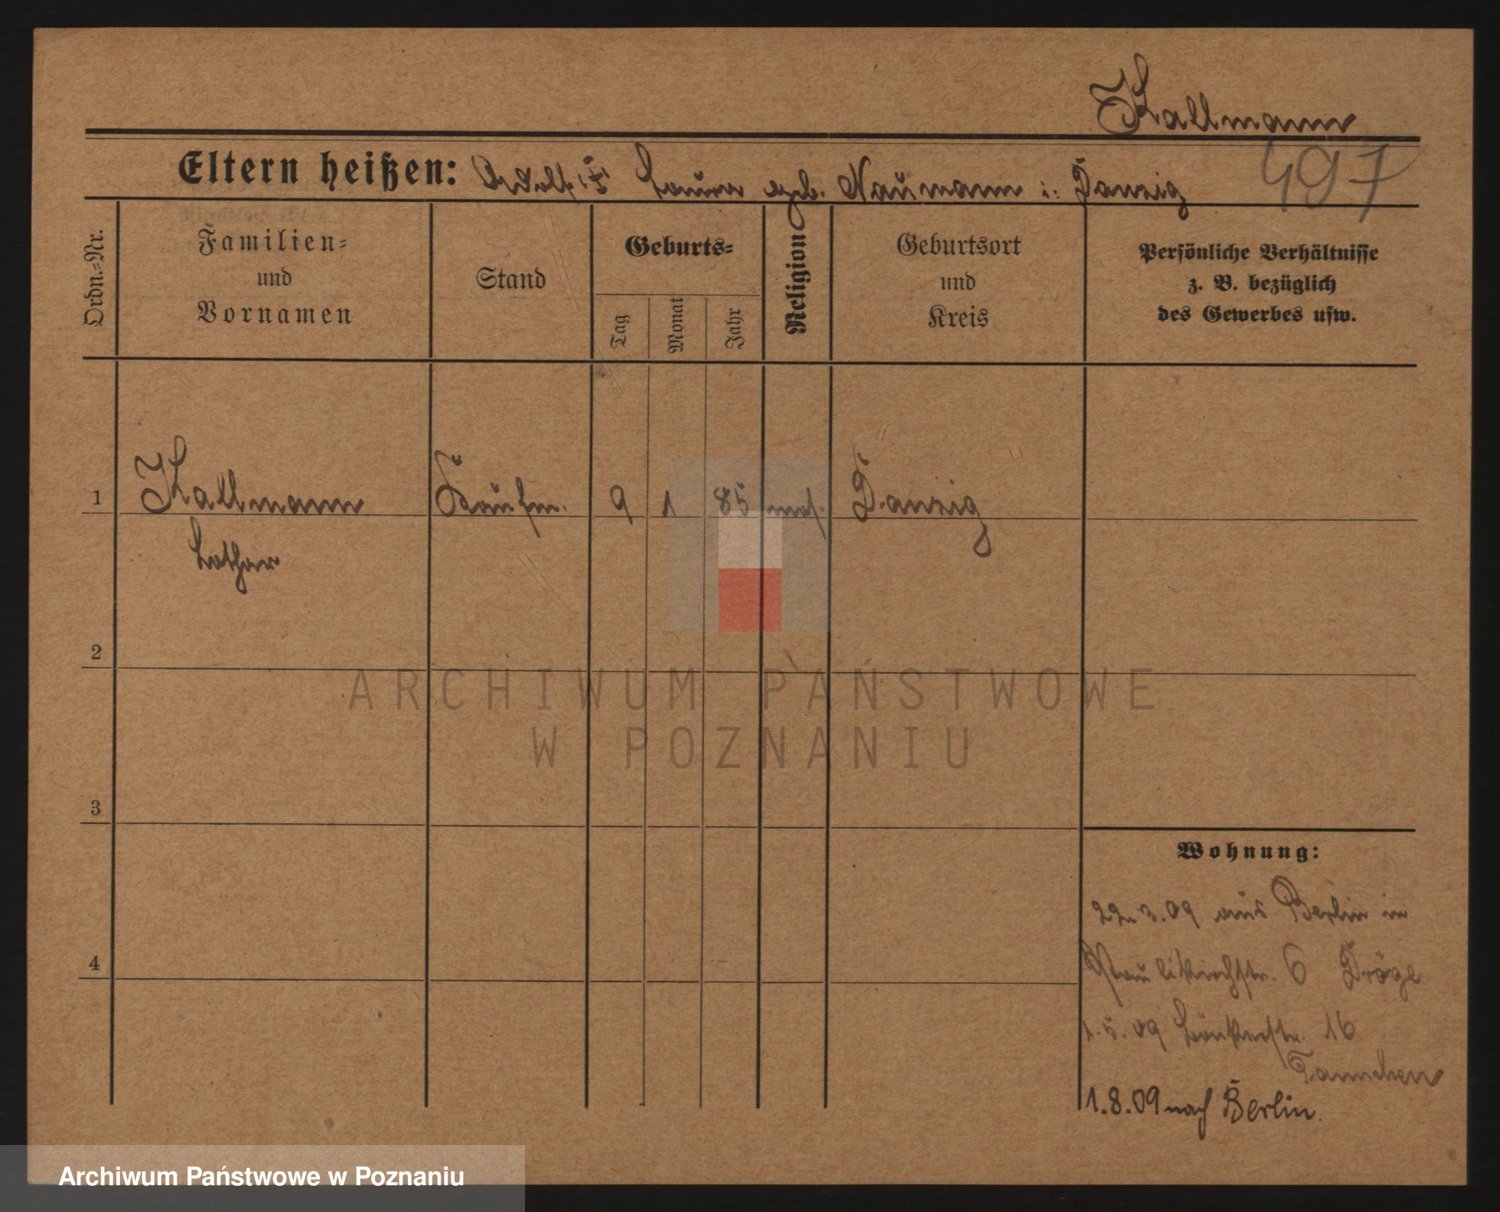 Kallmann
Eltern heißen: Adolf u. Laura geb. Naumann i. Danzig
497
Ordn.-Nr.
Familien-
und
Vornamen
Stand
Geburts-
Tag
Monat
Jahr
Religion
Geburtsort
und
Kreis
Persönliche Verhältnisse
z. B. bezüglich
des Gewerbes usw.
1 Kallmann Kaufm. 9 1 85 mos. Danzig
Lothar
2
ARCHIWUM PAŃSTWOWE
W POZNANIU
3
Wohnung:
22.3.09 aus Berlin in
Paulikirchstr. 6 Dröge
4
1.5.09 16
1.8.09 nach Berlin.
Archiwum Państwowe w Poznaniu